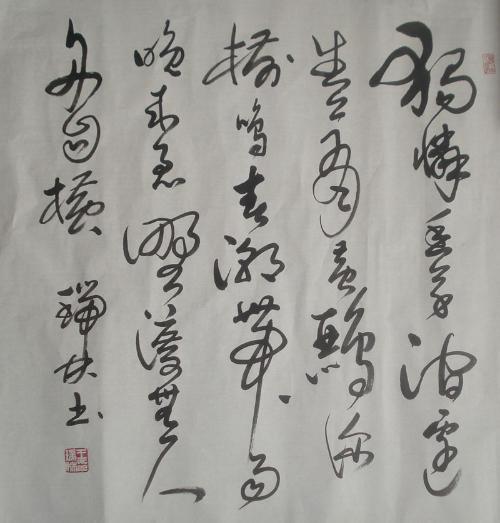 獨憐幽草澗邊
生上有黃鸝深
樹鳴春潮帶雨
晚来急野渡無人
舟自橫
瑞 书